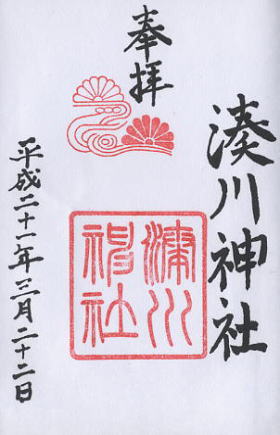 奉拝
湊川神社
湊川神社
平成二十一年三月二十二日